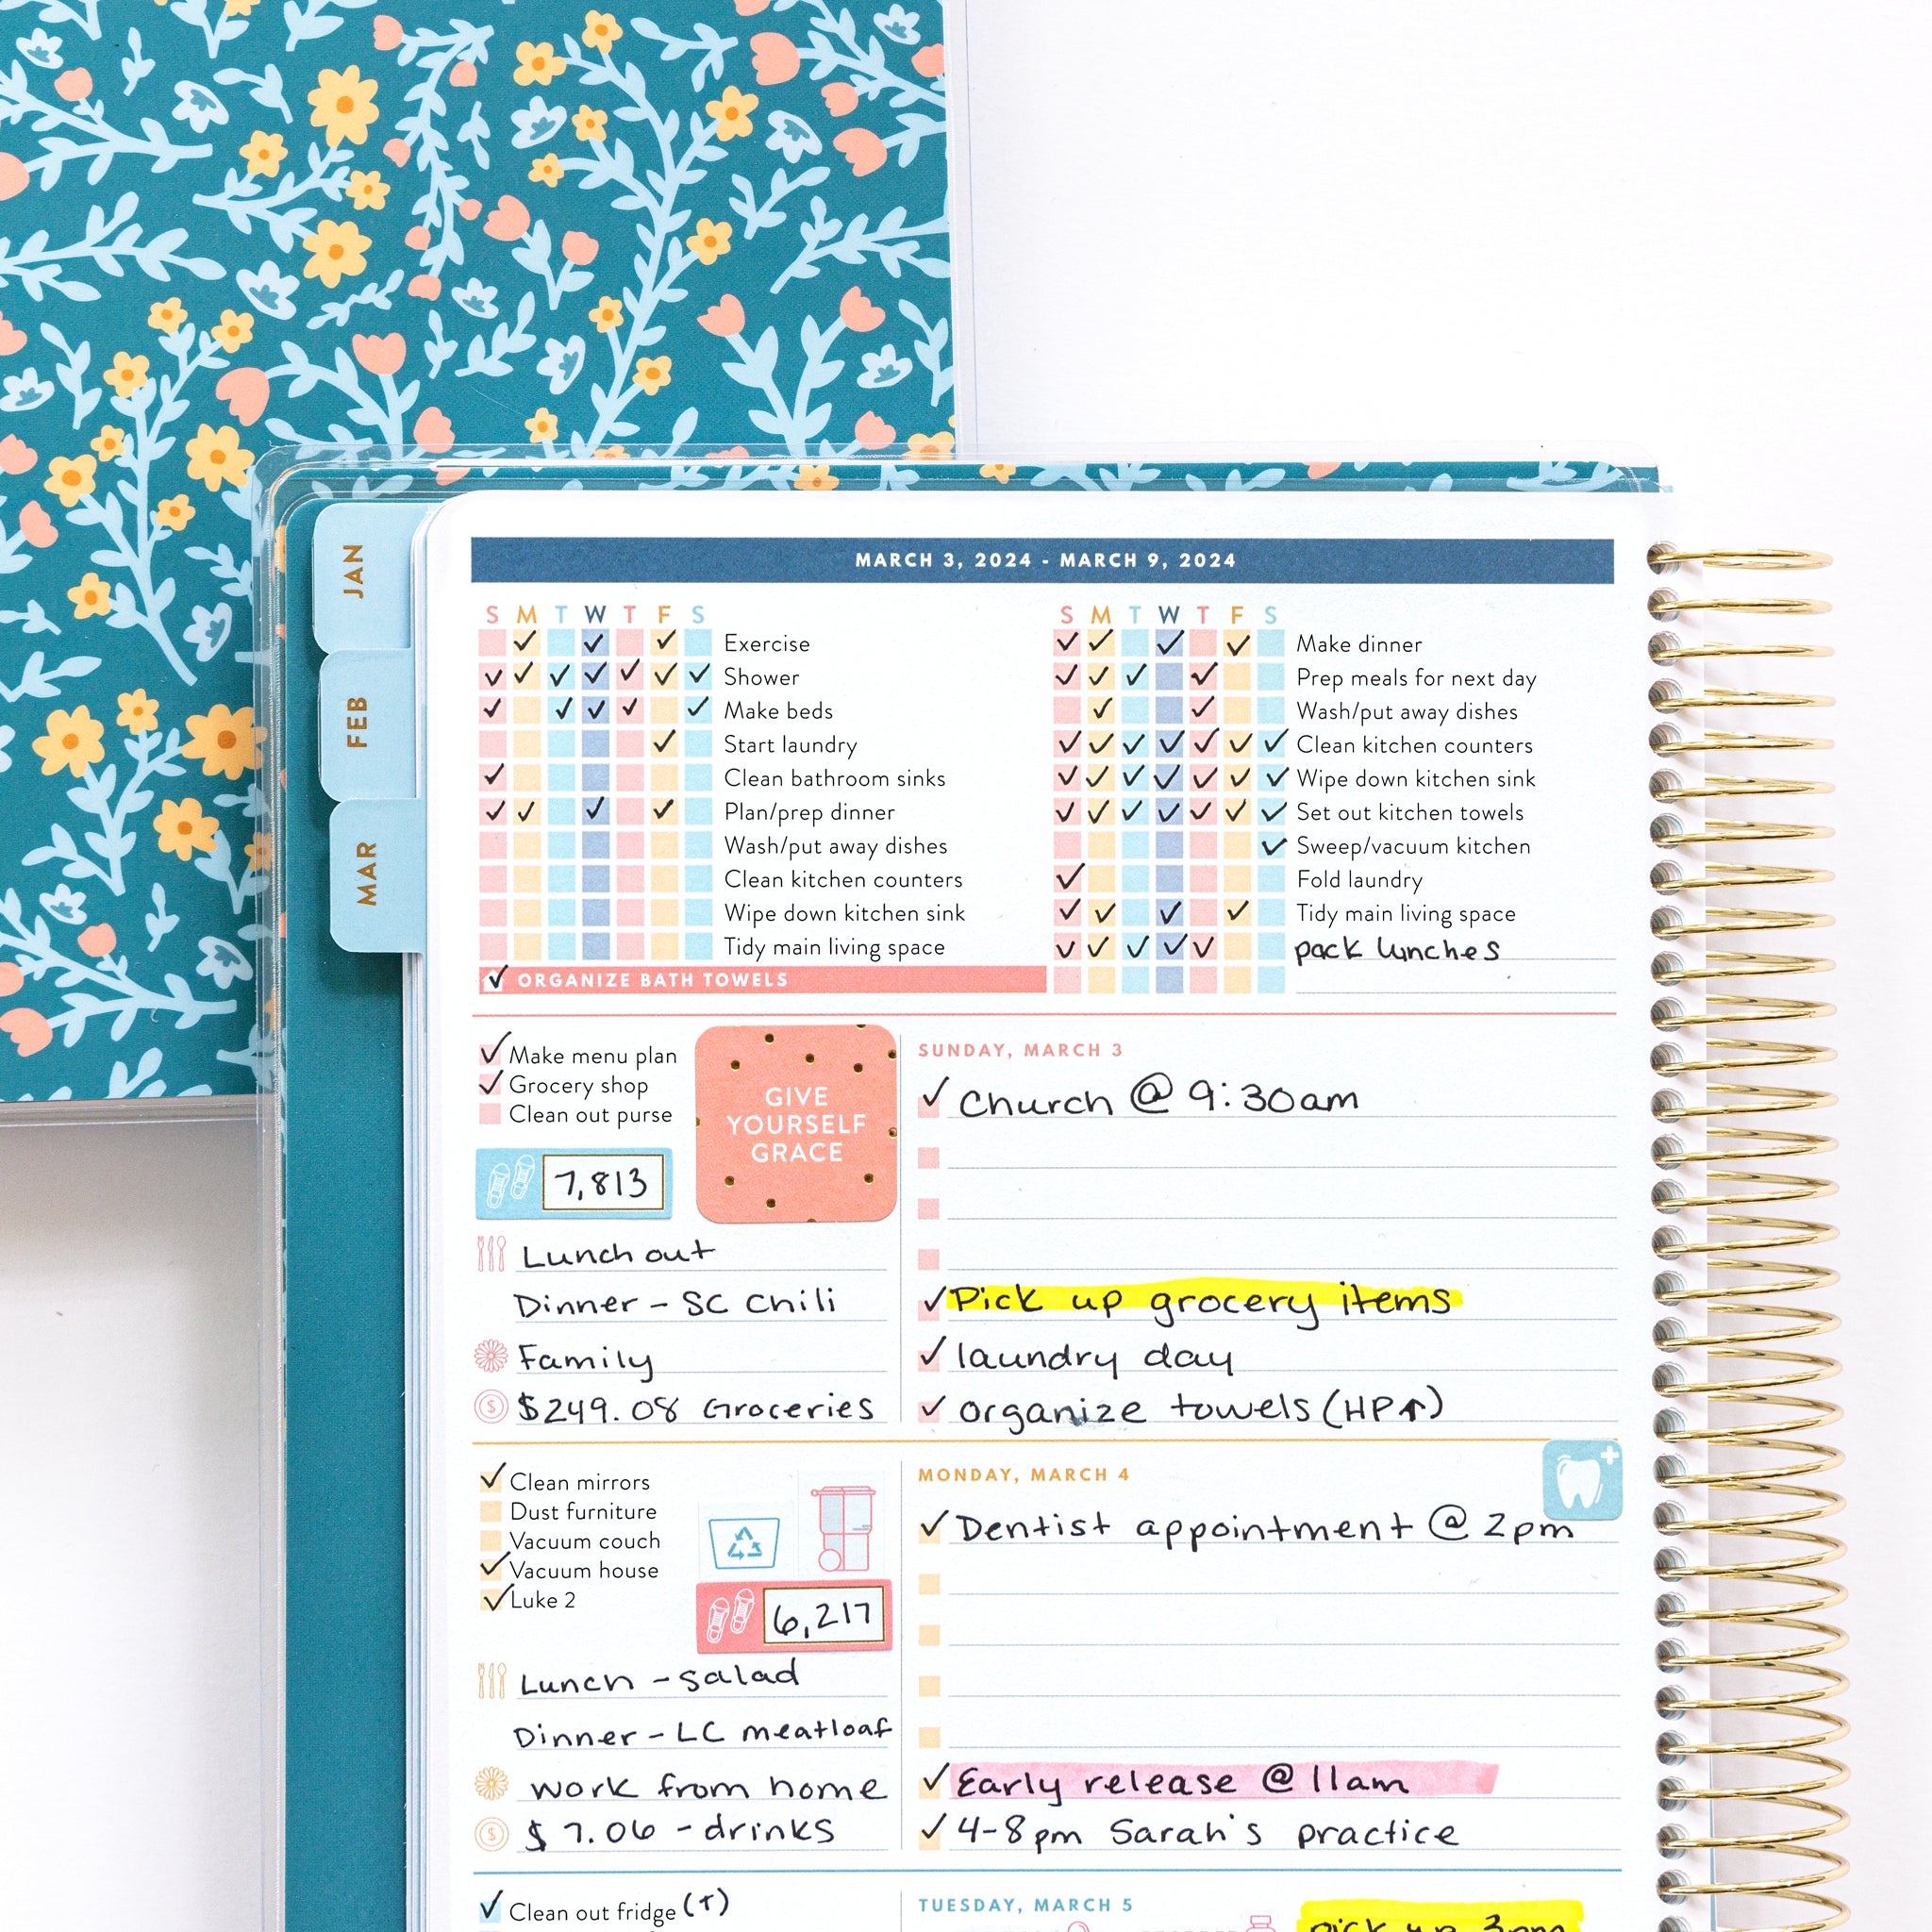 JAN
FEB
MAR
MARCH 3, 2024 - MARCH 9, 2024
S M T W T F S
✓ ✓ ✓ Exercise
✓ ✓ ✓ ✓ ✓ ✓ ✓ Shower
✓ ✓ ✓ ✓ ✓ Make beds
✓ Start laundry
✓ Clean bathroom sinks
✓ ✓ ✓ ✓ Plan/prep dinner
Wash/put away dishes
Clean kitchen counters
Wipe down kitchen sink
Tidy main living space
✓ ORGANIZE BATH TOWELS
S M T W T F S
✓ ✓ ✓ ✓ Make dinner
✓ ✓ ✓ ✓ Prep meals for next day
✓ ✓ Wash/put away dishes
✓ ✓ ✓ ✓ ✓ ✓ ✓ Clean kitchen counters
✓ ✓ ✓ ✓ ✓ ✓ ✓ Wipe down kitchen sink
✓ ✓ ✓ ✓ ✓ ✓ ✓ Set out kitchen towels
✓ Sweep/vacuum kitchen
✓ Fold laundry
✓ ✓ ✓ ✓ Tidy main living space
✓ ✓ ✓ ✓ ✓ pack lunches
✓ Make menu plan
✓ Grocery shop
Clean out purse
GIVE
YOURSELF
GRACE
7,813
Lunch out
Dinner - SC Chili
Family
$249.08 Groceries
SUNDAY, MARCH 3
✓ Church @ 9:30am
✓ Pick up grocery items
✓ laundry day
✓ organize towels (HP↑)
✓ Clean mirrors
Dust furniture
Vacuum couch
✓ Vacuum house
✓ Luke 2
6,217
Lunch - salad
Dinner - LC meatloaf
work from home
$7.06 - drinks
MONDAY, MARCH 4
✓ Dentist appointment @ 2pm
✓ Early release @ 11am
✓ 4-8pm Sarah's practice
✓ Clean out fridge (↑)
TUESDAY, MARCH 5
pick up 3pm